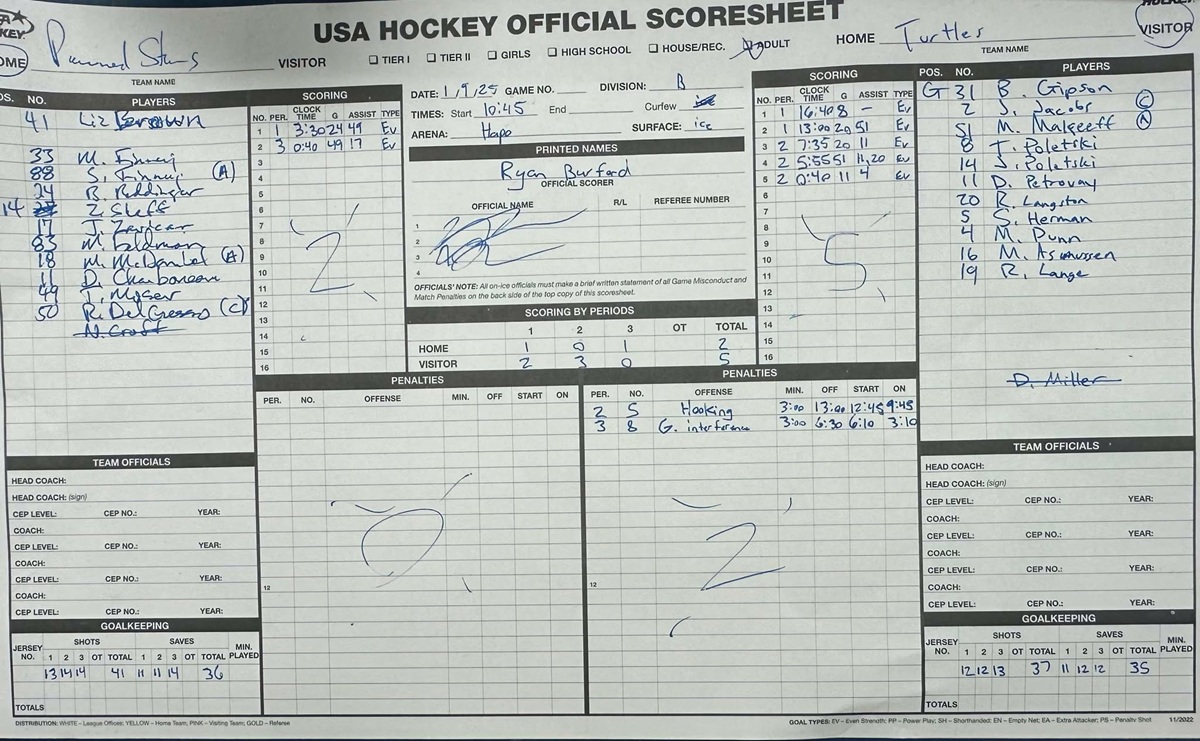 USA HOCKEY OFFICIAL SCORESHEET
KEY.
HOME
TEAM NAME
VISITOR
☐ TIER I ☐ TIER II ☐ GIRLS ☐ HIGH SCHOOL ☐ HOUSE/REC. ADULT
HOME Turtles
TEAM NAME
VISITOR
POS. NO. PLAYERS
41 Liz Brown
33 M. Finney
88 S. Finney (A)
24 B. Reddinger
14 Z. Sleff
17 J.
83 M. Feldman
18 M. McDaniel (A)
11 D. Charboneau
49 T. Moser
50 R. DelGrosso (C)
N. Croft
SCORING
NO. PER. CLOCK TIME G ASSIST TYPE
1 1 3:30 24 49 Ev
2 3 0:40 49 17 Ev
3
4
5
6
7
8
9
10
11
12
13
14
15
16
2
DATE: 1/9/25 GAME NO. DIVISION: B
TIMES: Start 10:45 End Curfew
ARENA: Hapo SURFACE: ice
PRINTED NAMES
Ryan Burford
OFFICIAL SCORER
OFFICIAL NAME R/L REFEREE NUMBER
1
2
3
4
OFFICIALS' NOTE: All on-ice officials must make a brief written statement of all Game Misconduct and
Match Penalties on the back side of the top copy of this scoresheet.
SCORING BY PERIODS
1 2 3 OT TOTAL
HOME 1 0 1 2
VISITOR 2 3 0 5
SCORING
NO. PER. CLOCK TIME G ASSIST TYPE
1 1 16:40 8 - Ev
2 1 13:00 20 51 Ev
3 2 7:35 20 11 Ev
4 2 5:55 51 11,20 Ev
5 2 0:40 11 4 Ev
6
7
8
9
10
11
12
13
14
15
16
5
POS. NO. PLAYERS
G 31 B. Gipson
2 J. Jacobs (C)
51 M. Malgeeff (A)
8 T. Poletski
14 J. Poletski
11 D. Petrovay
20 R. Langston
5 S. Herman
4 M. Dunn
16 M. Asmussen
19 R. Lange
D. Miller
PENALTIES
PER. NO. OFFENSE MIN. OFF START ON
0
12
PENALTIES
PER. NO. OFFENSE MIN. OFF START ON
2 5 Hooking 3:00 13:00 12:45 9:45
3 8 G. interference 3:00 6:30 6:10 3:10
2
12
TEAM OFFICIALS
HEAD COACH:
HEAD COACH: (sign)
CEP LEVEL: CEP NO.: YEAR:
COACH:
CEP LEVEL: CEP NO.: YEAR:
COACH:
CEP LEVEL: CEP NO.: YEAR:
COACH:
CEP LEVEL: CEP NO.: YEAR:
GOALKEEPING
JERSEY NO. SHOTS SAVES MIN. PLAYED
1 2 3 OT TOTAL 1 2 3 OT TOTAL
13 14 14 41 11 11 14 36
TOTALS
TEAM OFFICIALS
HEAD COACH:
HEAD COACH: (sign)
CEP LEVEL: CEP NO.: YEAR:
COACH:
CEP LEVEL: CEP NO.: YEAR:
COACH:
CEP LEVEL: CEP NO.: YEAR:
COACH:
CEP LEVEL: CEP NO.: YEAR:
GOALKEEPING
JERSEY NO. SHOTS SAVES MIN. PLAYED
1 2 3 OT TOTAL 1 2 3 OT TOTAL
12 12 13 37 11 12 12 35
TOTALS
DISTRIBUTION: WHITE – League Offices; YELLOW – Home Team, PINK – Visiting Team; GOLD – Referee
GOAL TYPES: EV – Even Strength; PP – Power Play; SH – Shorthanded; EN – Empty Net; EA – Extra Attacker; PS – Penalty Shot 11/2022